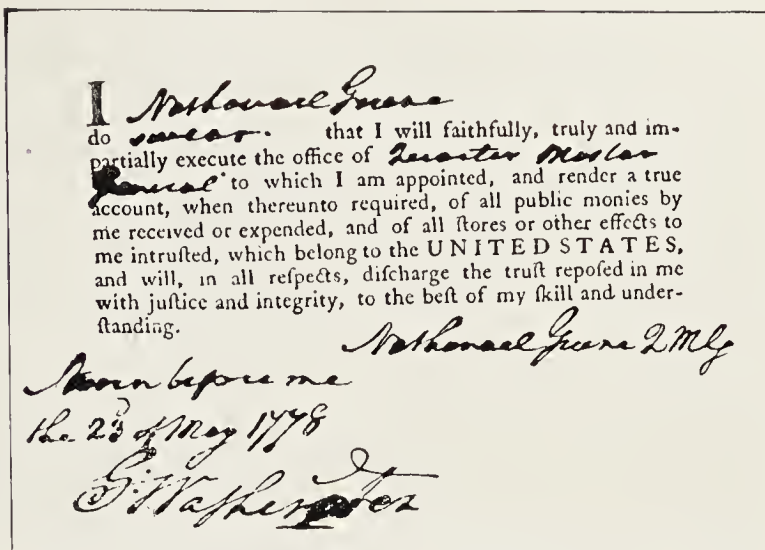 I Nathanael Greene
do swear. that I will faithfully, truly and im-
partially execute the office of Quarter Master
General to which I am appointed, and render a true
account, when thereunto required, of all public monies by
me received or expended, and of all ſtores or other effects to
me intruſted, which belong to the UNITED STATES,
and will, in all reſpects, diſcharge the truſt repoſed in me
with juſtice and integrity, to the beſt of my ſkill and under-
ſtanding.
Nathanael Greene QMG
Sworn before me
the 23d of May 1778
G:Washington